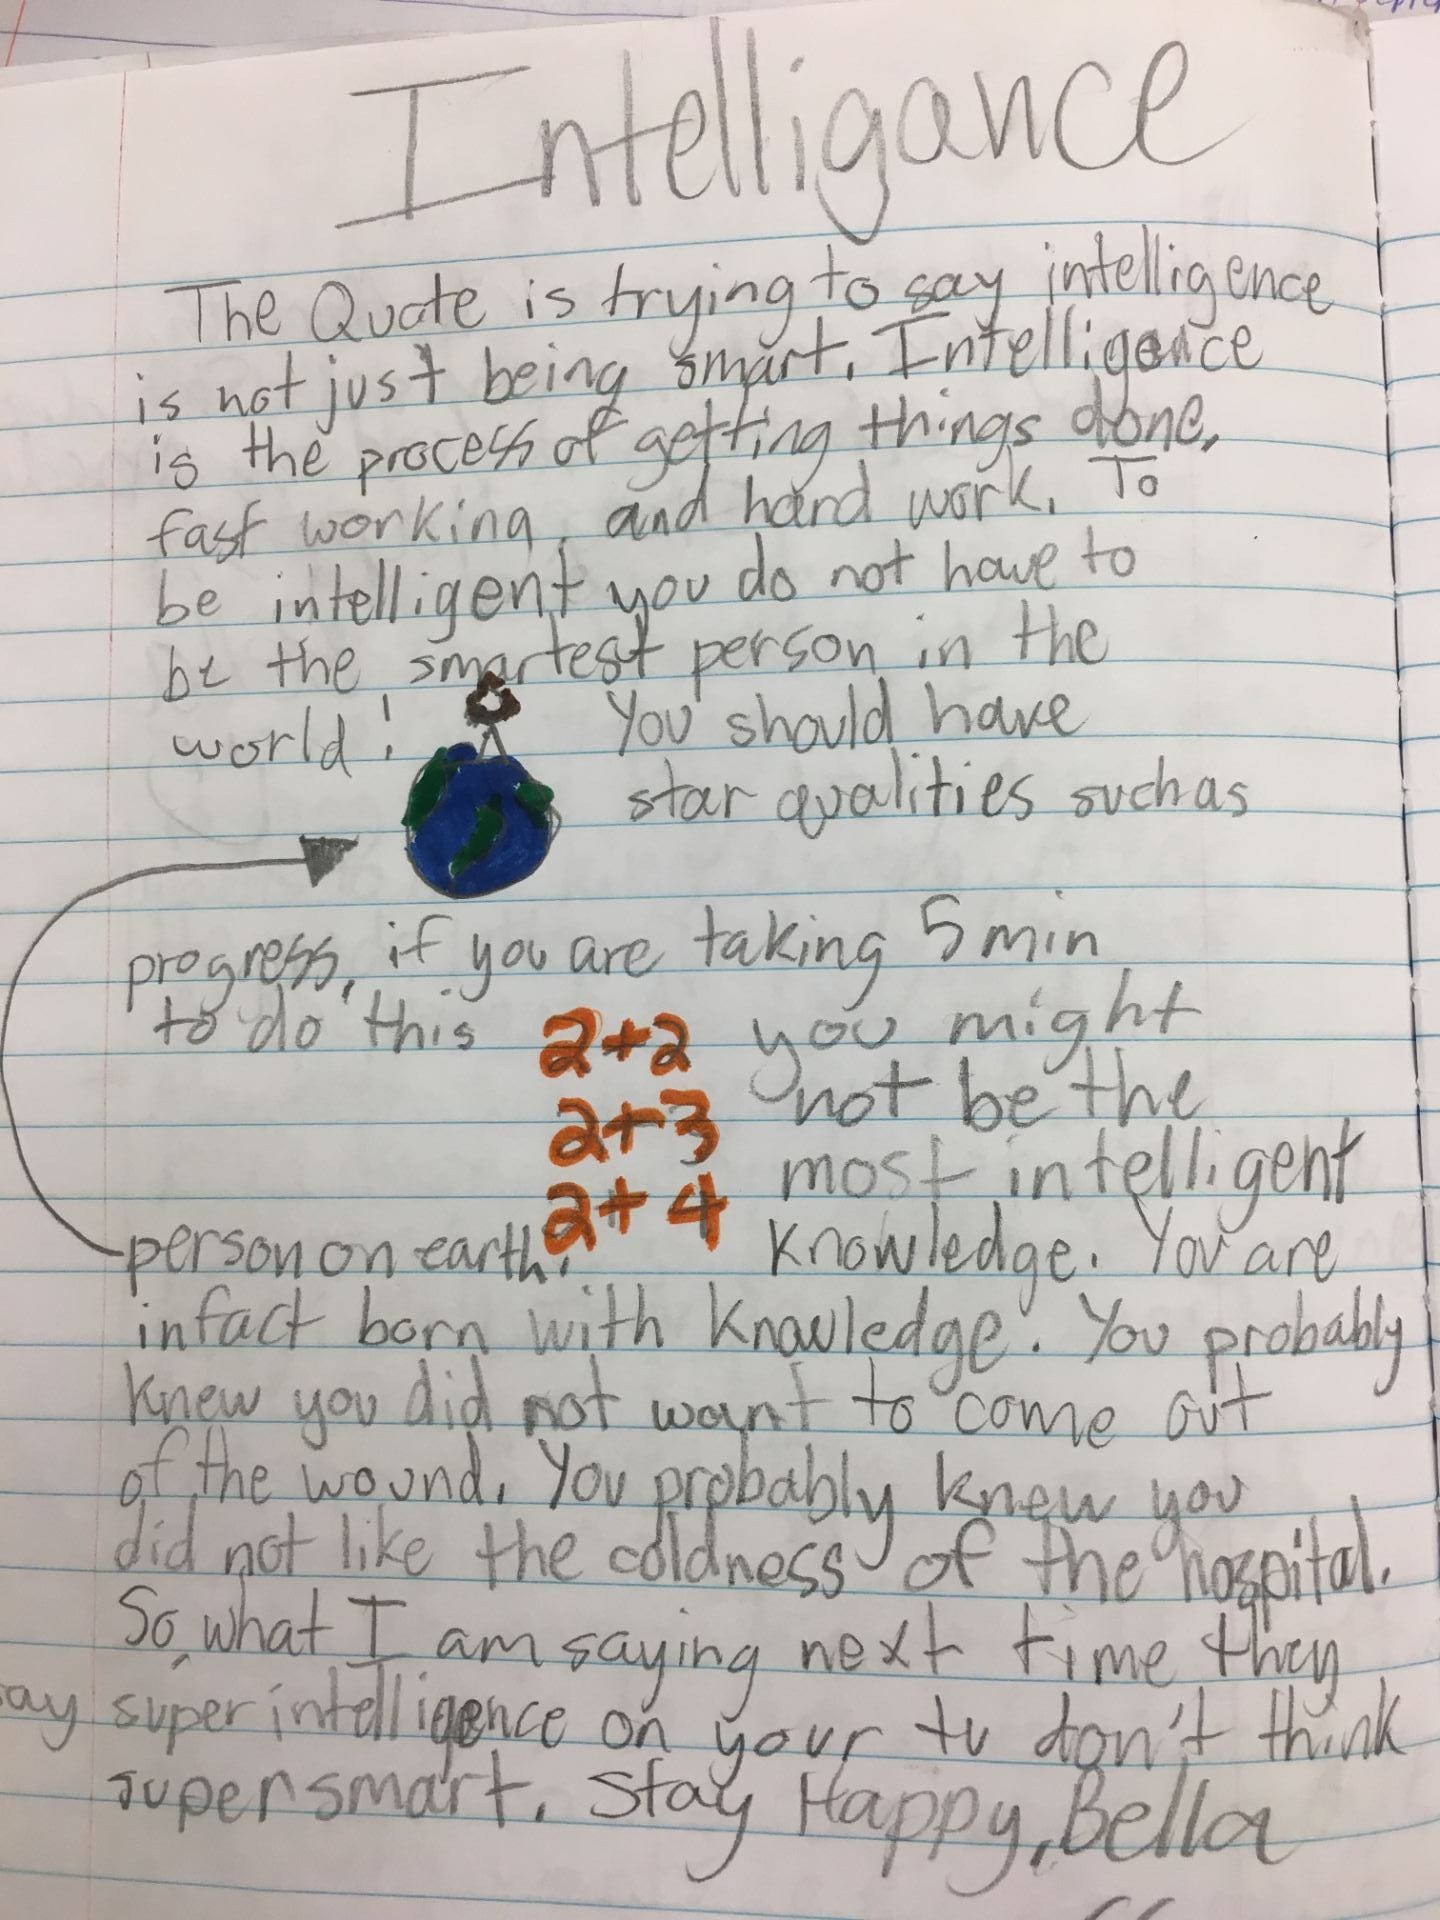 Intelligance
The Quote is trying to say intelligence
is not just being smart. Intelligence
is the process of getting things done,
fast working, and hard work. To
be intelligent you do not have to
be the smartest person in the
world! You should have
star qualities such as
progress, if you are taking 5 min
to do this 2+2 you might
2+3 not be the
2+4 most intelligent
person on earth. Knowledge. You are
infact born with Knowledge. You probably
knew you did not want to come out
of the wound. You probably knew you
did not like the coldness of the hospital.
So, what I am saying next time they
say super intelligence on your tv don't think
super smart. Stay Happy, Bella